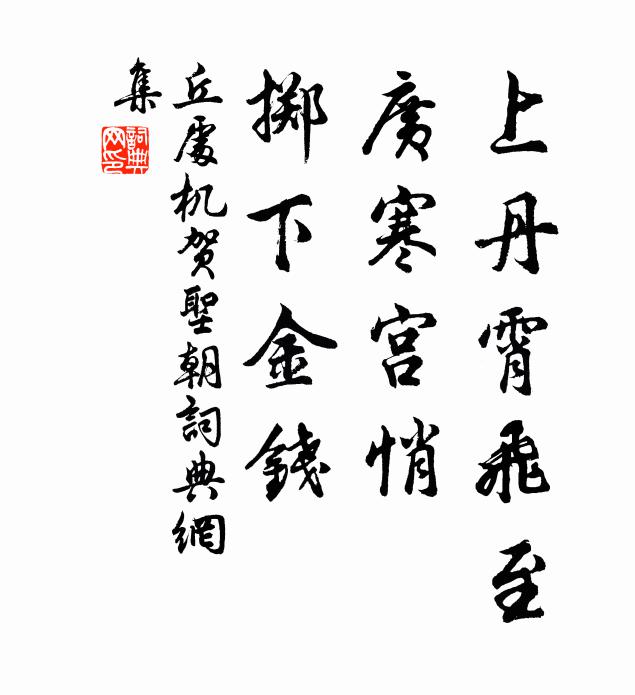 上丹霄飛至
廣寒宮悄
擲下金錢
丘處机賀聖朝詞典網
集
詞典網印